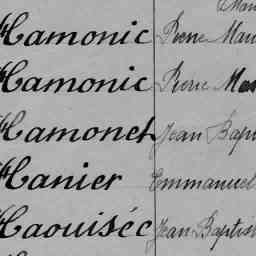 Hamonic Pierre Mau
Hamonic Pierre Mar
Hamonet Jean Bap
Hanier Emmanuel
Haouisée Jean Baptis